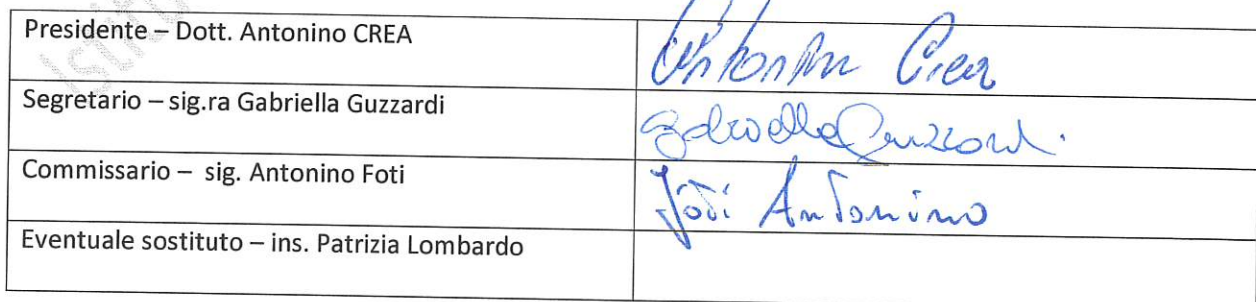 Istitu
Presidente – Dott. Antonino CREA
Antonino Crea
Segretario – sig.ra Gabriella Guzzardi
Gabriella Guzzardi
Commissario – sig. Antonino Foti
Foti Antonino
Eventuale sostituto – ins. Patrizia Lombardo